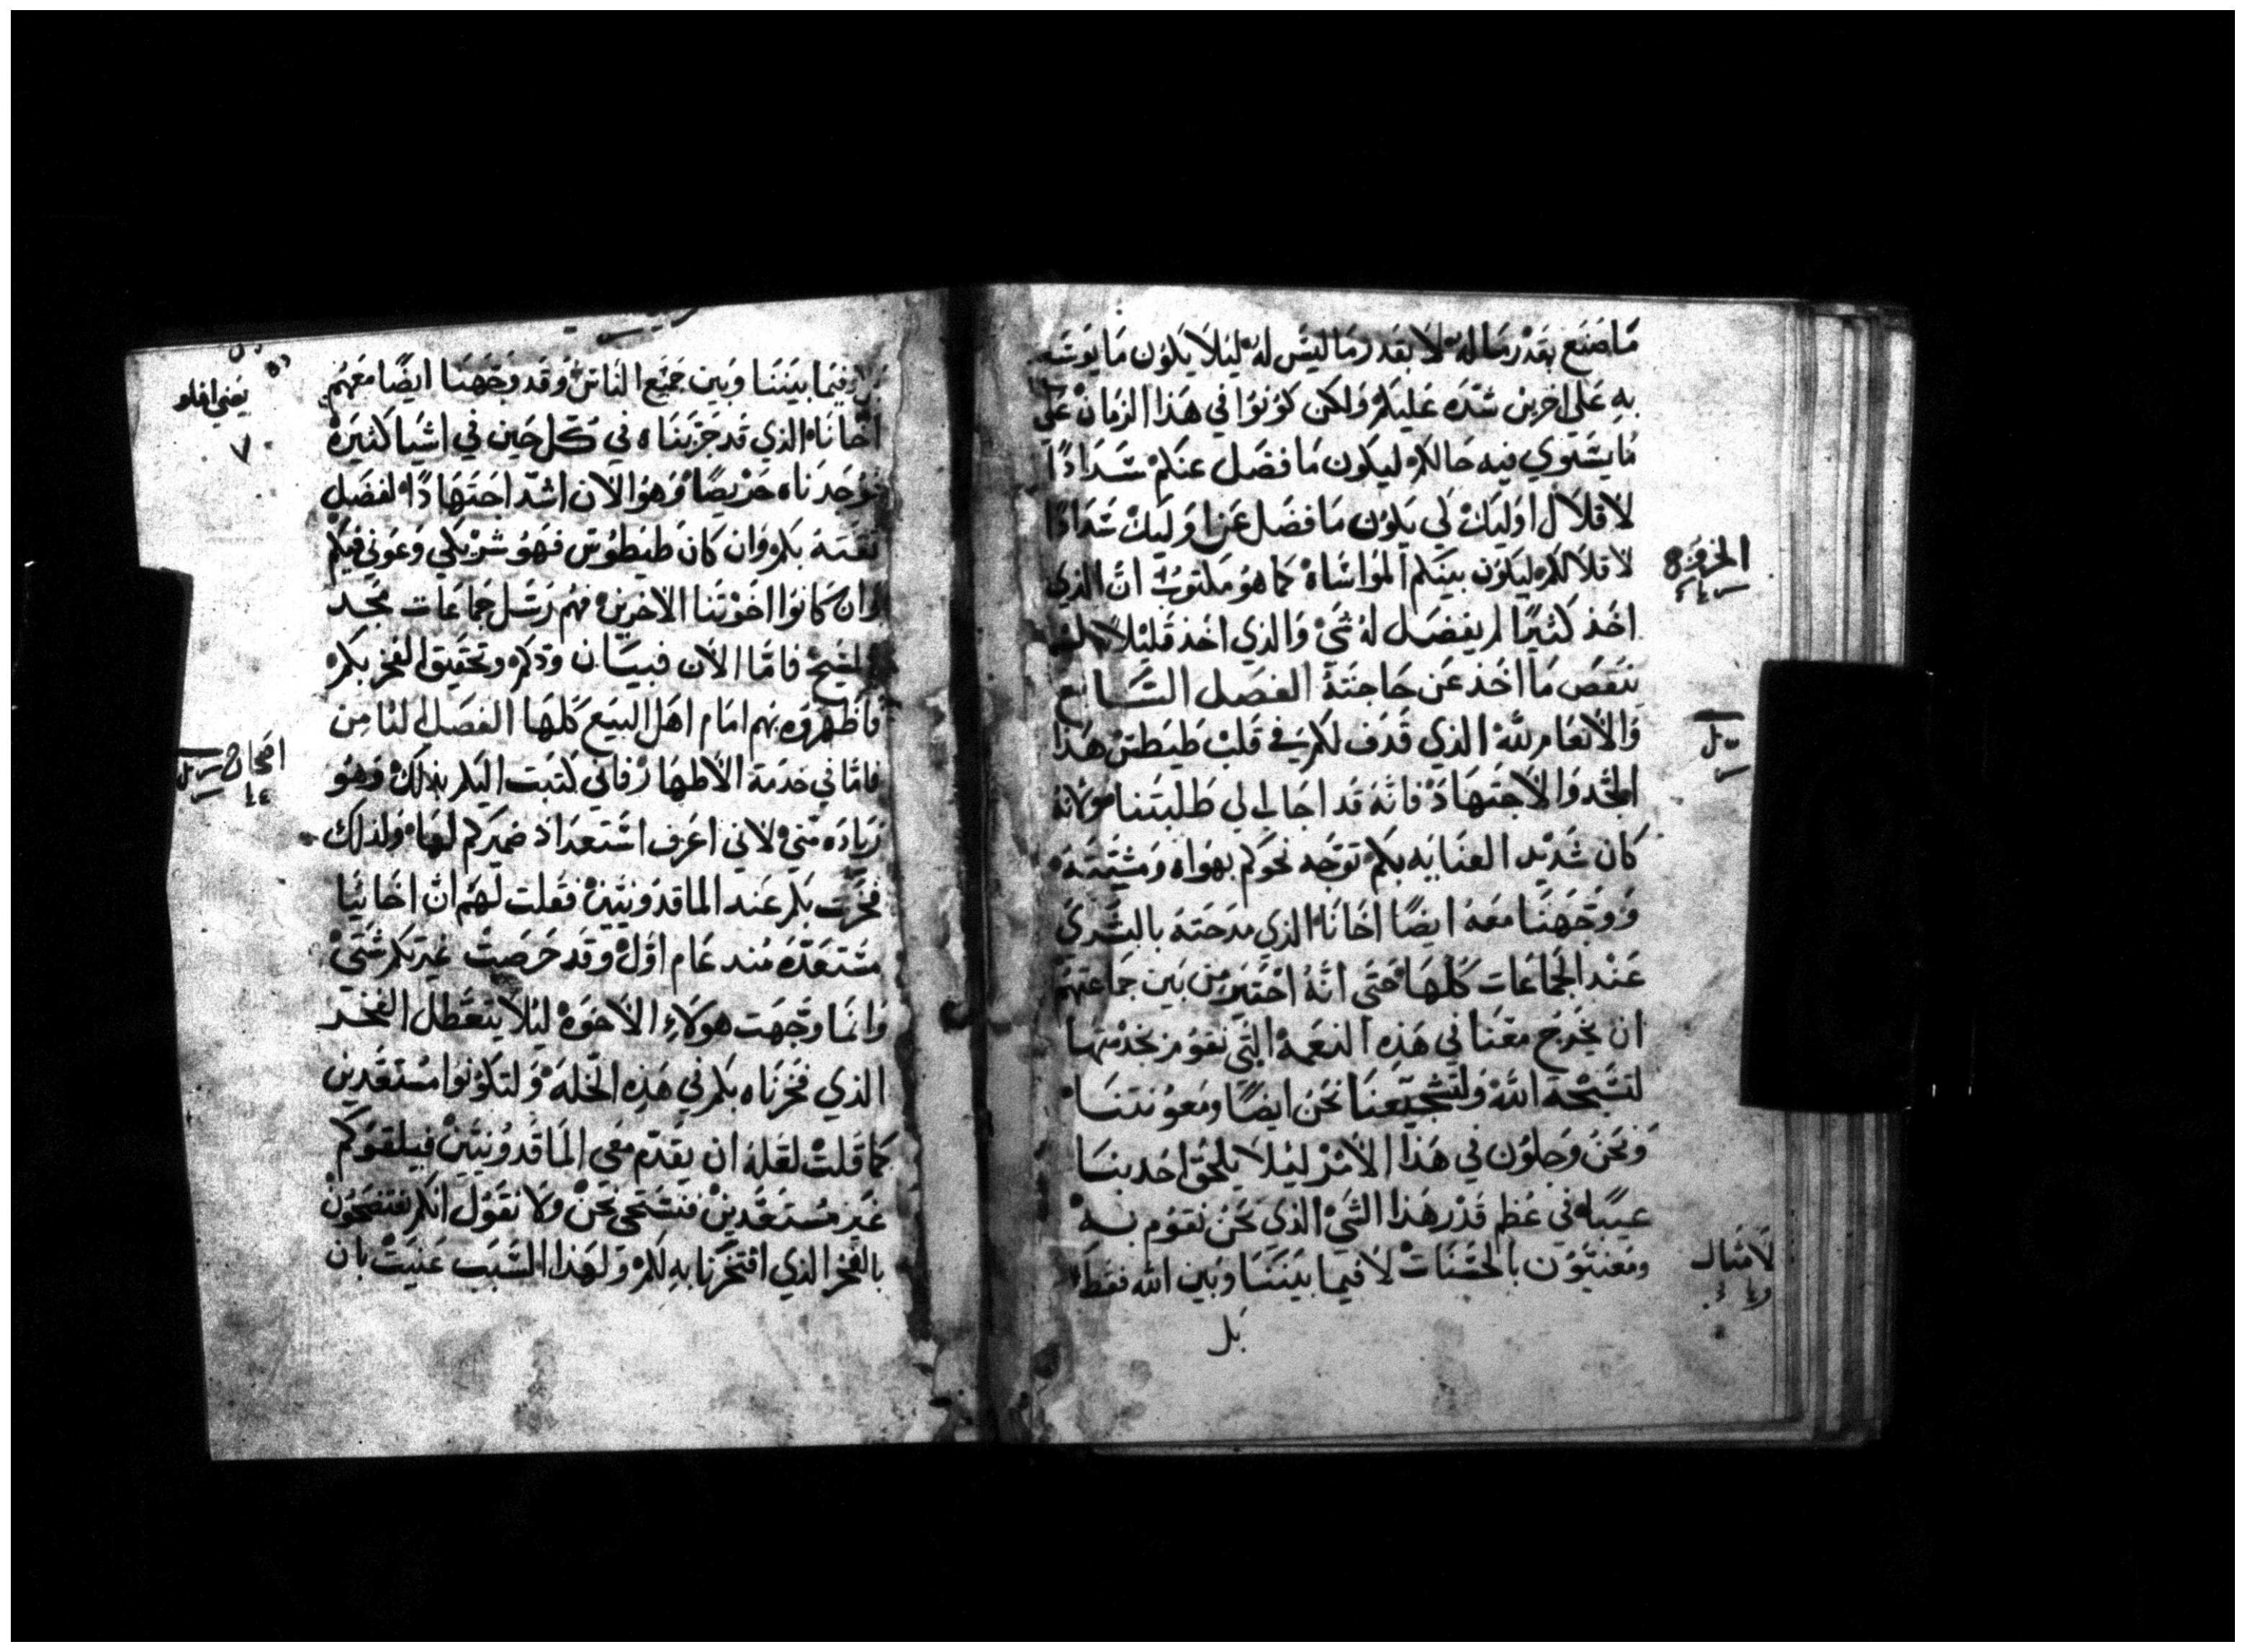 مَا صَنَع بقَدْر مَا لهُ لا بقدر مَا ليسَ لهُ ليلا يكون مَا يوسّع
بهِ عَلي اخرين شدّه عَليكم ولكن كونوا في هَذا الزمان عَلي
مَا يستوي فيه حَالكم ليكون مَا فضَل عنكم سَدَادًا
لاقلال اوليك لي يكون مَا فضَل عَن اوليك سَدَادًا
لاقلالكم ليكون بينكم المواسَاة كما هو مكتوب انّ الذي
اخذ كثيرًا لم يفضَل لهُ شي والذي اخذ قليلا لم
ينقص مَا اخذ عَن حَاجته الفصَل السَابع
وَالانعَام لله الذي قذف لكم في قلب طيطس هذا
الجد والاجتهَاد فانه قد اجاب لي طلبتنا ولانه
كان شديد العنايه بكم توجّه نحوكم بهواه ومشيّته
ووجّهنا معَه ايضًا اخَانَا الذي مدحته بالبشري
عَند الجماعَات كلهَا حَتي انّه اختير من بين جماعتهم
ان يخرج معَنا في هَذه النعمة التي نقوم بخدمتها
لتسبحة الله ولتشجيعنا نحن ايضًا ومعونتنا
ونحن وَجلون في هَذا الامر ليلا يلحق احد بنا
عيبًا في عظم قدر هذا الشي الذي نحن نقوم به
ومعنيّون بالحسَنات لا فيما بيننا وبين الله فقط
بل
الخروج
لامثال
بل فيما بيننا وبين جميع الناس وقد وجّهنا ايضًا معهم
اخَانا الذي قد جرّبناه في كل حين في اشيا كثيره
فوجدناه حَريصًا وهو الان اشدّ اجتهادًا لفضل
ثقته بكم وان كان طيطوس فهو شريكي وعوني فيكم
وان كانوا اخوتنا الاخرين فهم رسل جماعَات مجد
المسيح فامّا الان فبيان ودكم وتحقيق الفخر بكم
فاظهروه بهم امام اهل البيع كلها الفصل الثامن
فامّا في خدمة الاطهار فاني كتبت اليكم بذلك وهو
زيادَه منّي لاني اعرف استعداد ضميركم لها ولذلك
فخرت بكم عند الماقدونيين فقلت لهم انّ اخَائيا
مستعدّه منذ عَام اوّل وقد حَرصت غيرتكم
وانما وجّهت هولاء الاخوة ليلا يتعطل الفخر
الذي فخرناه بكم في هذه الخلة ولتكونوا مستعَدين
كما قلت لعَله ان يقدم معي الماقدونيين فيلقوكم
غير مستعَدين فنستحي نحن ولا نقول انكم تفتضحون
بالفخر الذي افتخرنا به لكم ولهذا السّبب عنيت بان
يعني افلو
٧
اصحاح